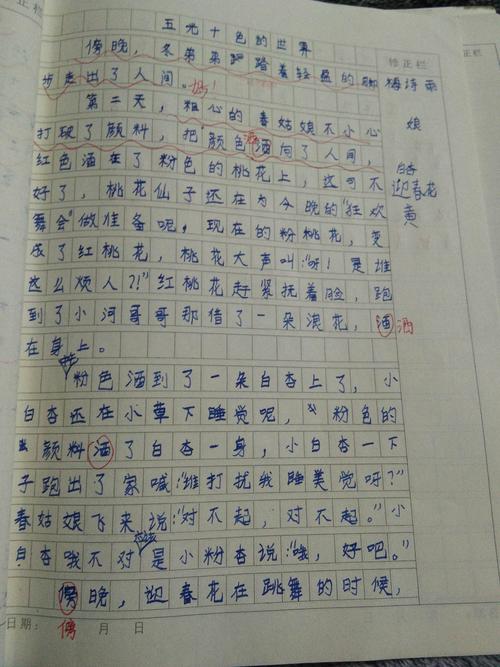 五光十色的世界
正栏
修正栏
傍晚，冬弟弟踏着轻盈的脚
梅诗雨
步走出了人间。
第二天，粗心的春姑娘不小心
娘
打破了颜料，把颜色洒向了人间，
洒
红色洒在了粉色的桃花上，这可不
杏
迎春花
好了，桃花仙子还在为今晚的"狂欢
黄
舞会"做准备呢，现在的粉桃花，变
成了红桃花，桃花大声叫："呀！是谁
这么烦人？！"红桃花赶紧抚着脸，跑
到了小河哥哥那借了一朵浪花，洒
洒
在身上。
粉色洒到了一朵白杏上了，小
白杏还在小草下睡觉呢，粉色的
颜料洒了白杏一身，小白杏一下
子跑出了家喊："谁打扰我睡美觉呀？"
春姑娘飞来说："对不起，对不起。"小
应该
白杏哦不对是小粉杏说："哦，好吧。"
傍晚，迎春花在跳舞的时候，
日期：
傍
月 日